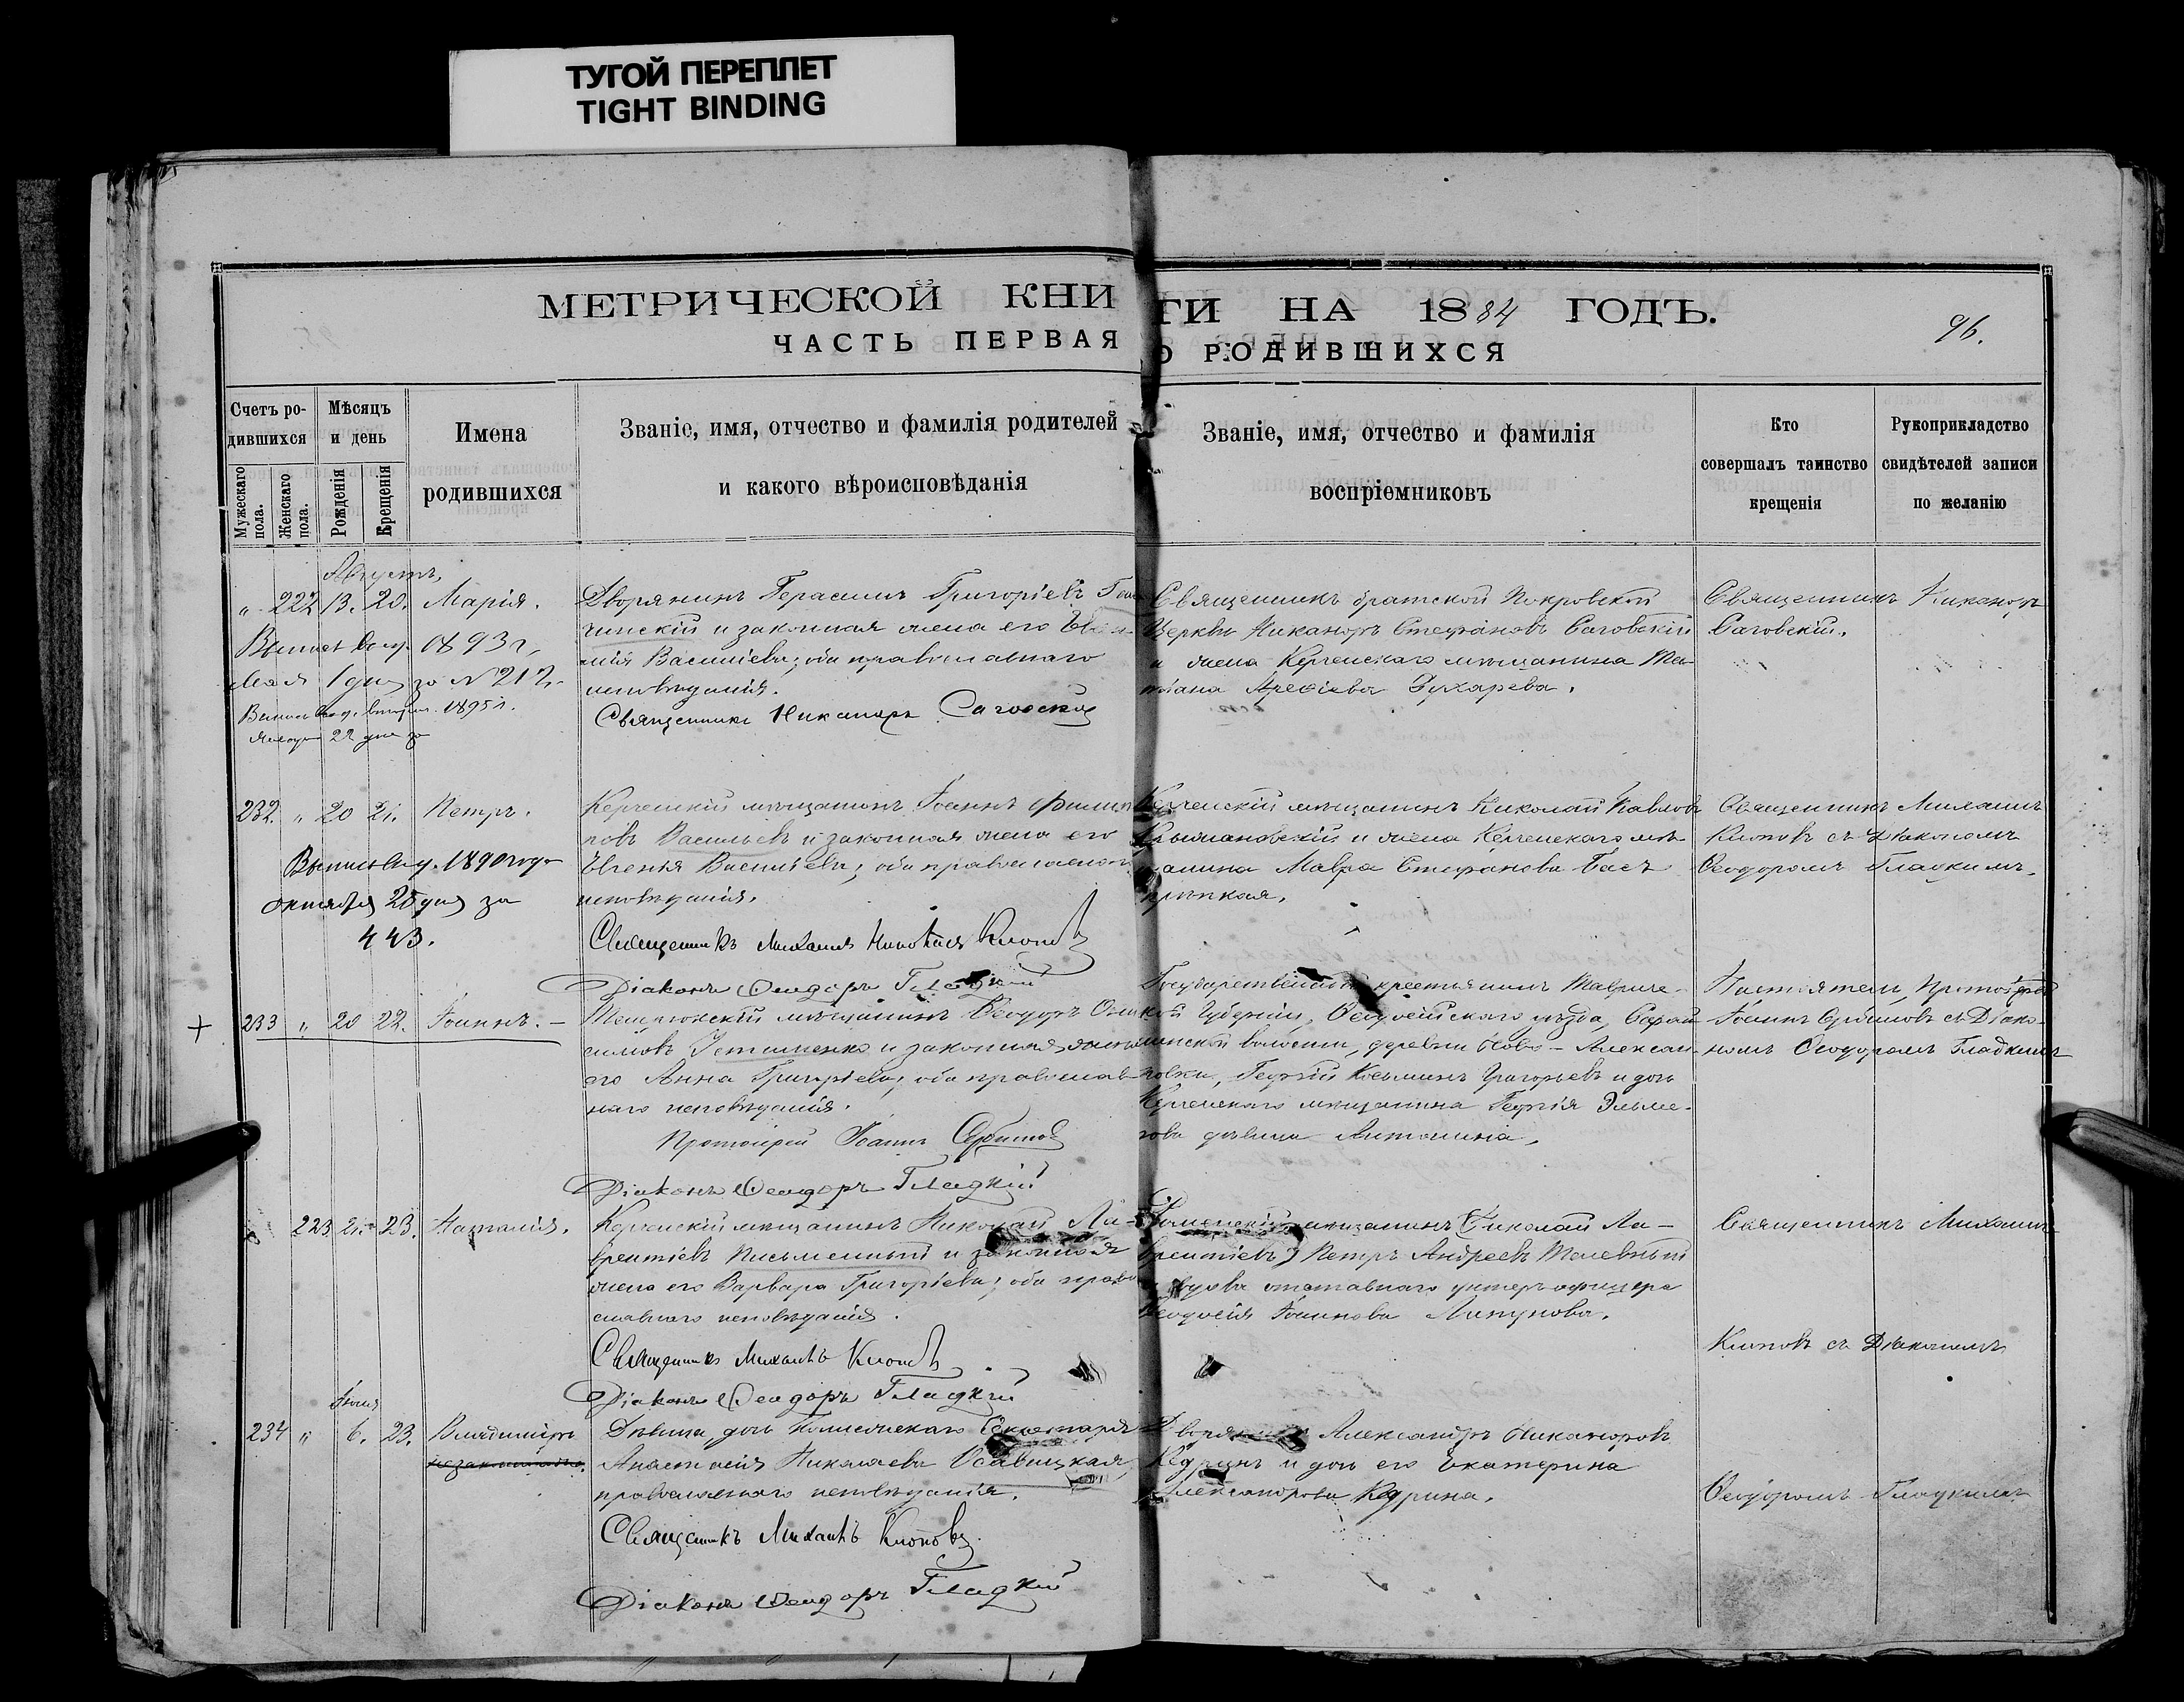 ТУГОЙ ПЕРЕПЛЕТ
TIGHT BINDING
МЕТРИЧЕСКОЙ КНИ
ГИ НА 1884 ГОДЪ.
ЧАСТЬ ПЕРВАЯ
О РОДИВШИХСЯ
96.
Счетъ ро-
дившихся
Мужескаго пола.
Женскаго пола.
Мѣсяцъ
и день
Рожденія
Крещенія
Имена
родившихся
Званіе, имя, отчество и фамилія родителей
и какого вѣроисповѣданія
Званіе, имя, отчество и фамилія
воспріемниковъ
Кто
совершалъ таинство
крещенія
Рукоприкладство
свидѣтелей записи
по желанію
Августъ
" 222 13. 20. Марія.
1893 г.
Мая 1 дня за № 212
1895 г.
22 дня за
Дворянинъ Герасимъ Григорьевъ
чинскій и законная жена его
мія Васильева; оба православнаго
исповѣданія.
Священникъ Никаноръ Саговскій
Священникъ братской Покровской
Церкви Никаноръ Стефановъ Саговскій
и жена Керченскаго мѣщанина Та-
тіана
Священникъ Никаноръ
Саговскій.
232. " 20 21. Петръ.
1890 года
октября 25 дня за
443.
Керченскій мѣщанинъ Іоаннъ Филип
повъ Васильевъ и законная жена его
Евгенія Васильева; оба православнаго
исповѣданія.
Священникъ Михаилъ Клоповъ
Діаконъ Ѳеодоръ Гладкій
Керченскій мѣщанинъ Николай Павловъ
и жена Керченскаго мѣ-
щанина Мавра Стефанова
Священникъ Михаилъ
Клоповъ съ Діакономъ
Ѳеодоромъ Гладкимъ.
+ 233 " 20 22. Іоаннъ. -
мѣщанинъ Ѳеодоръ
симовъ Устименко и законная жена
его Анна Григорьева; оба православ-
наго исповѣданія.
Протоіерей Іоаннъ Сербиновъ
Діаконъ Ѳеодоръ Гладкій
Государственный крестьянинъ Тавриче-
ской Губерніи, Ѳеодосійскаго уѣзда, Сарай-
минской волости, деревни Ново-Алексан-
ровки, Георгій Косьминъ Григорьевъ и дочь
Керченскаго мѣщанина Георгія
дѣвица Антонина.
Настоятель, Протоіерей
Іоаннъ Сербиновъ съ Діако-
номъ Ѳеодоромъ Гладкимъ
223 21. 23. Наталія.
Керченскій мѣщанинъ Николай Ла-
врентіевъ Письменный и законная
жена его Варвара Григорьева; оба право
славнаго исповѣданія.
Священникъ Михаилъ Клоповъ
Діаконъ Ѳеодоръ Гладкій
мѣщанинъ (Николай Ла-
врентіевъ) Петръ Андреевъ
и вдова отставнаго унтеръ-офицера
Ѳеодосія Іоаннова Липунова.
Священникъ Михаилъ
Клоповъ съ Діакономъ
Ѳеодоромъ Гладкимъ
Іюня
234 " 6. 23. Владиміръ
незаконный.
Дѣвица, дочь Коллежскаго Секретаря
Анастасія Николаева
православнаго исповѣданія.
Священникъ Михаилъ Клоповъ
Діаконъ Ѳеодоръ Гладкій
Дворянинъ Александръ Никаноровъ
Кудринъ и дочь его Екатерина
Александрова Кудрина.